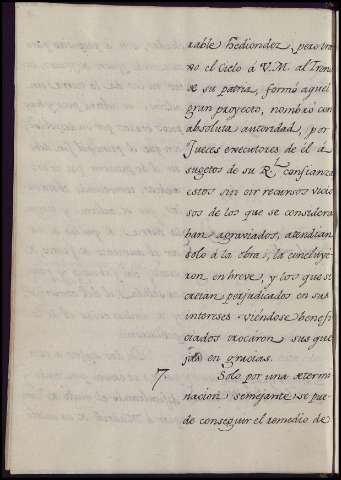 rable hediondez, pero tra
xo el Cielo á V.M. al Trono
de su patria, formó aquel
gran proyecto, nombró con
absoluta autoridad, por
Jueces executores de él á
sugetos de su Rl. confianza
estos sin oir recursos vicio
sos de los que se considera
ban agraviados, atendian
solo á la obra, la concluye
ron en breve, y los que se
creían perjudicados en sus
intereses viéndose benefi
ciados trocaron sus que
jas en gracias.
7. Solo por una determi
nacion semejante se pue
de conseguir el remedio de